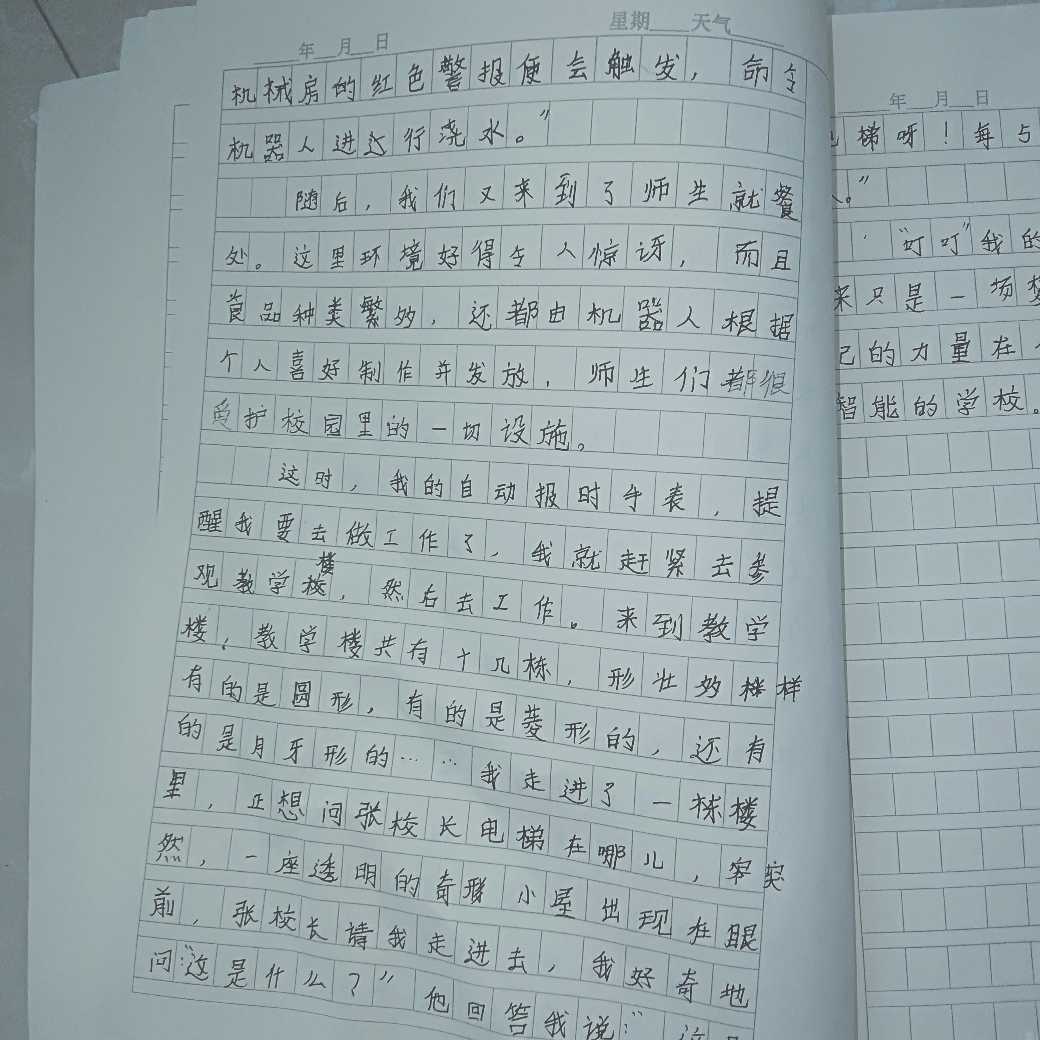 年 月 日 星期 天气
机械房的红色警报便会触发，命令
机器人进行浇水。”
随后，我们又来到了师生就餐
处。这里环境好得令人惊讶，而且
食品种类繁多，还都由机器人根据
个人喜好制作并发放，师生们都很
爱护校园里的一切设施。
这时，我的自动报时手表，提
醒我要去做工作了，我就赶紧去参
观教学楼，然后去工作。来到教学
楼，教学楼共有十几栋，形壮多样
有的是圆形，有的是菱形的，还有
的是月牙形的……我走进了一栋楼
里，正想问张校长电梯在哪儿，突
然，一座透明的奇形小屋出现在眼
前，张校长请我走进去，我好奇地
问：“这是什么？”他回答我说：“
年 月 日
梯呀！每与
。”
“叮叮”我的
来只是一场梦
己的力量在
智能的学校。